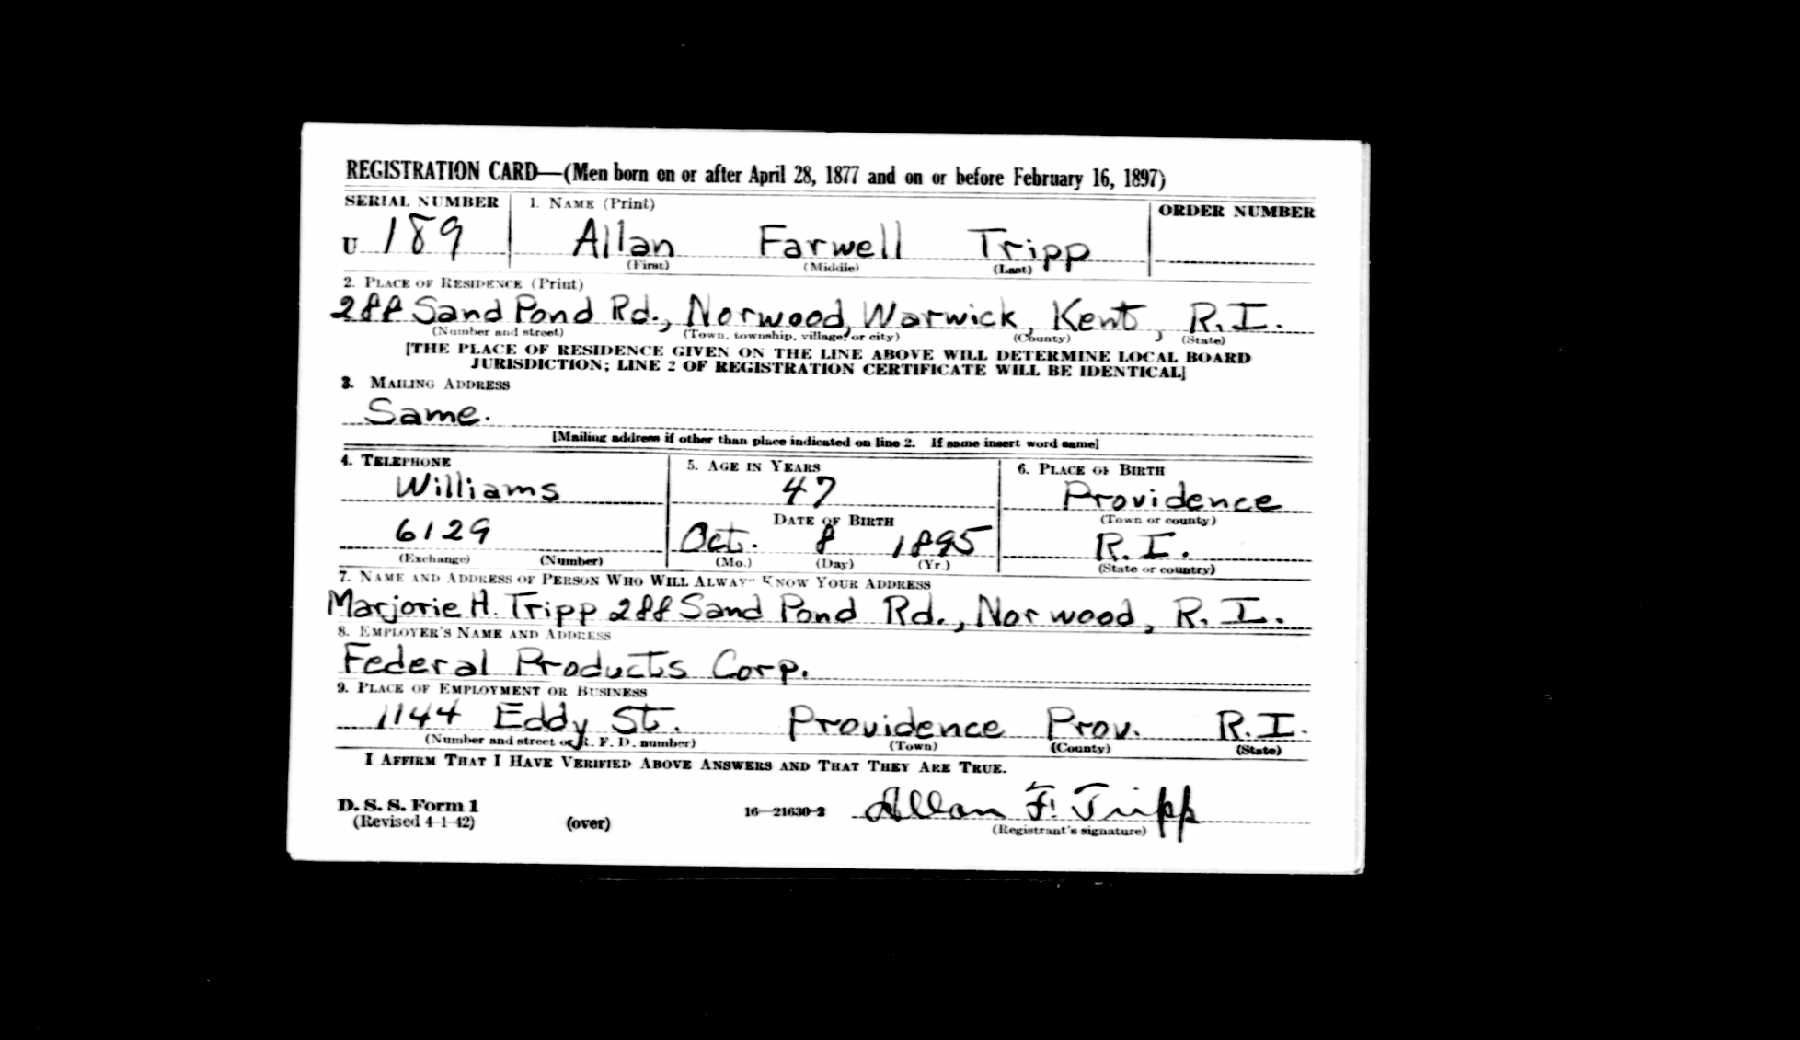 REGISTRATION CARD—(Men born on or after April 28, 1877 and on or before February 16, 1897)
SERIAL NUMBER 1. NAME (Print) ORDER NUMBER
U 189 Allan Farwell Tripp
(First) (Middle) (Last)
2. PLACE OF RESIDENCE (Print)
288 Sand Pond Rd., Norwood, Warwick, Kent, R.I.
(Number and street) (Town, township, village, or city) (County) (State)
[THE PLACE OF RESIDENCE GIVEN ON THE LINE ABOVE WILL DETERMINE LOCAL BOARD
JURISDICTION; LINE 2 OF REGISTRATION CERTIFICATE WILL BE IDENTICAL]
3. MAILING ADDRESS
Same.
[Mailing address if other than place indicated on line 2. If same insert word same]
4. TELEPHONE 5. AGE IN YEARS 6. PLACE OF BIRTH
Williams 47 Providence
DATE OF BIRTH (Town or county)
6129 Oct. 8 1895 R.I.
(Exchange) (Number) (Mo.) (Day) (Yr.) (State or country)
7. NAME AND ADDRESS OF PERSON WHO WILL ALWAYS KNOW YOUR ADDRESS
Marjorie H. Tripp 288 Sand Pond Rd., Norwood, R.I.
8. EMPLOYER'S NAME AND ADDRESS
Federal Products Corp.
9. PLACE OF EMPLOYMENT OR BUSINESS
1144 Eddy St. Providence Prov. R.I.
(Number and street or R. F. D. number) (Town) (County) (State)
I AFFIRM THAT I HAVE VERIFIED ABOVE ANSWERS AND THAT THEY ARE TRUE.
D. S. S. Form 1
(Revised 4-1-42) (over) 16—21630-2 Allan F. Tripp
(Registrant's signature)